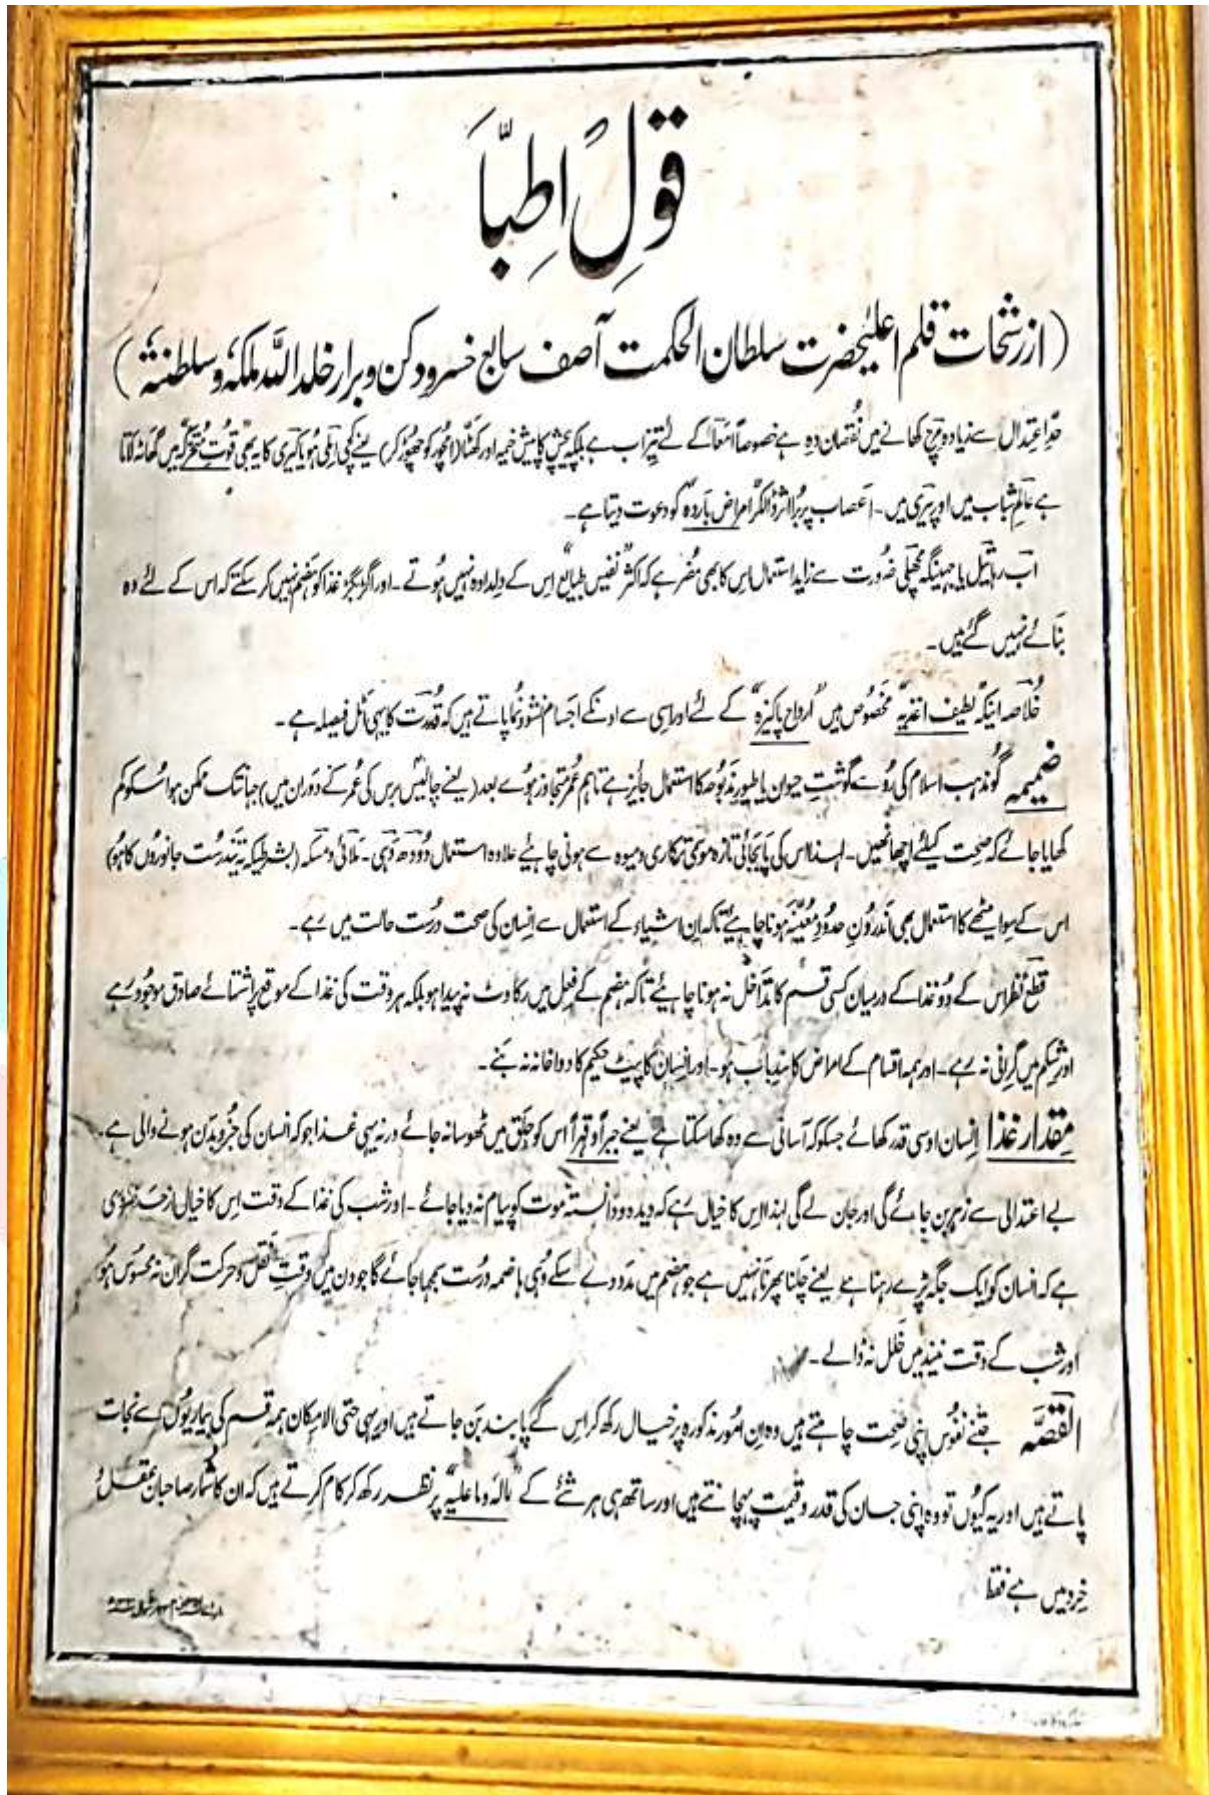 قولِ اطِبّا
(از رشحات قلم اعلیٰحضرت سلطان الحکمت آصف سابع خسرو دکن و برار خلد اللہ ملکہٗ و سلطنتہٗ)
حدِّ اعتدال سے زیادہ مِرچ کھانے میں نُقصان دہ ہے خصوصاً امعَا کے لئے تیزاب ہے بلکہ پیچش کا پیش خیمہ اور کھٹّا (امچور کو چھوڑ کر) یعنے کچّی اِملی ہو یا کیری کا یہ بھی "قوتِ مُتحرّکہ" میں گھاٹہ لاتا
ہے عالمِ شباب میں اور پیری میں۔ اعصاب پر بُرا اثر ڈالکر "امراض باردہ" کو دعوت دیتا ہے۔
اَب رہا تیل یا جھینگہ مچھلی ضرورت سے زاید استعمال اِس کا بھی مُضر ہے کہ اکثر "نفیس طبایع" اِس کے دِلدادہ نہیں ہوتے۔ اور اگر بگڑ غذا کو ہضم نہیں کر سکتے کہ اس کے لئے وہ
بنائے نہیں گئے ہیں۔
خُلاصہ اینکہ "لطیف اغذیہ" مخصُوص ہیں "ارواح پاکیزہ" کے لئے اور اِسی سے اونکے اجسام نشوونُما پاتے ہیں کہ قُدرت کا یہی اٹل فیصلہ ہے۔
ضمیمہ گو مذہب اسلام کی رُو سے گوشتِ حیوان یا طیورِ مذبُوحہ کا استعمال جایز ہے تاہم عُمر متجاوز ہوے بعد (یعنے چالیس برس کی عُمر کے دَوران میں) جہانتک ممکن ہو اسکو کم
کھایا جائے کہ صحت کیلئے اچھا نہیں۔ لہٰذا اِس کی پابجائی تازہ موسمی ترکاری و میوہ سے ہونی چاہئے علاوہ استعمال دُودھ دہی۔ ملائی و مسکہ (بشرطیکہ یہ تندرست جانوروں کا ہو)
اس کے سِوا میٹھے کا استعمال بھی اَندرُونِ حدُودِ مُعیّنہ ہونا چاہئے تاکہ اِن اشیاء کے استعمال سے اِنسان کی صحت درست حالت میں رہے۔
قطعِ نظر اس کے دُو غذا کے درمیان کسی قسم کا تداخل نہ ہونا چاہئے تاکہ ہضم کے فِعل میں رکاوٹ نہ پیدا ہو بلکہ ہر وقت کی غذا کے موقع پر اِشتہائے صادق موجُود رہے
اور شِکم میں گِرانی نہ رہے۔ اور ہمہ اقسام کے امراض کا سدِّباب ہو۔ اور اِنسان کا پیٹ حکیم کا دواخانہ نہ بنے۔
مِقدار غذا اِنسان اوسی قدر کھائے جسکو کہ آسانی سے وہ کھا سکتا ہے یعنے جبراً و قہراً اس کو حَلق میں ٹھوسا نہ جائے ورنہ یہی غذا جو کہ انسان کی جُزوِ بدن ہونے والی ہے
بے اعتدالی سے زہر بن جائے گی اور جان لے گی لہٰذا اِس کا خیال رہے کہ دیدہ و دانستہ موت کو پیام نہ دیا جائے۔ اور شب کی غذا کے وقت اِس کا خیال از حد ضروری
ہے کہ انسان کو ایک جگہ پڑے رہنا ہے یعنے چلنا پھرنا نہیں ہے جو ہضم میں مدد دے سکے وُہی ہاضمہ درست سمجھا جائے گا جو دن میں وقتِ نقل و حرکت گران نہ محسوس ہو
اور شب کے وقت نیند میں خلل نہ ڈالے۔
القصّہ جتنے نفوُس اپنی صحت چاہتے ہیں وہ اِن امُور مذکورہ پر خیال رکھ کر اِس کے پابند بن جاتے ہیں اور یہی حتی الامکان ہمہ قسم کی بیماریوں سے نجات
پاتے ہیں اور یہ کیوُں تو وہ اپنی جان کی قدر و قیمت پہچانتے ہیں اور ساتھ ہی ہر شئے کے "مالہٗ و ما علیہ" پر نظر رکھ کر کام کرتے ہیں کہ ان کا شمار صاحبان عقل و
خِرد میں ہے فقط